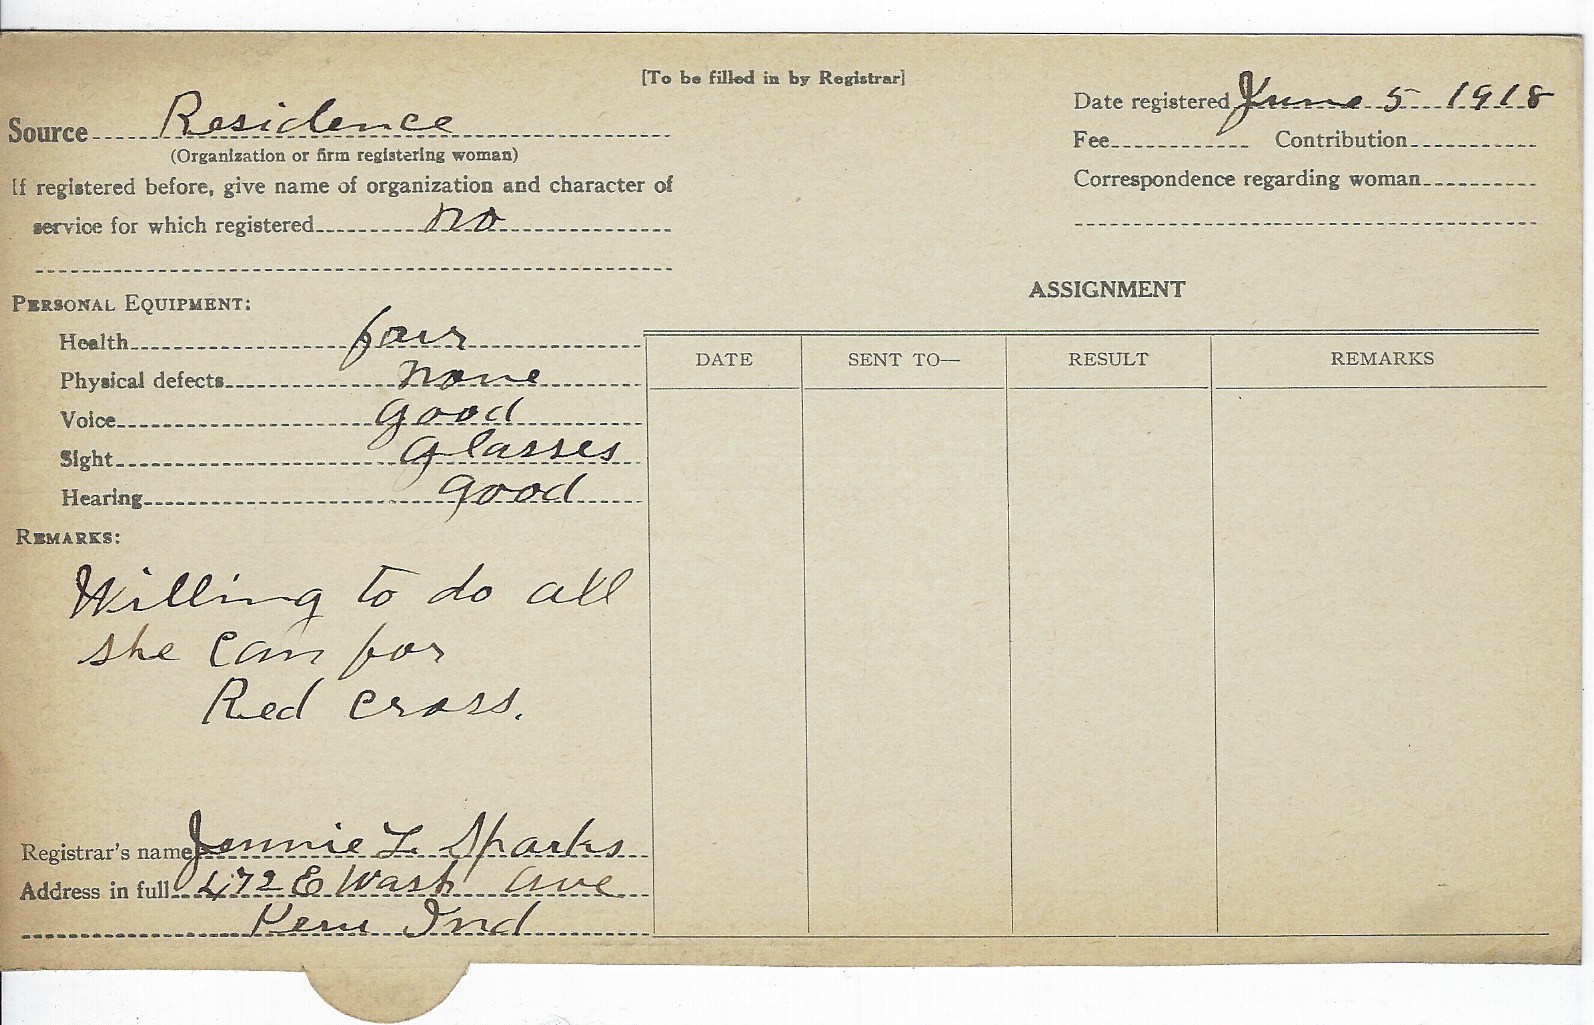 [To be filled in by Registrar]
Source Residence
(Organization or firm registering woman)
If registered before, give name of organization and character of
service for which registered no
Date registered June 5 1918
Fee Contribution
Correspondence regarding woman
PERSONAL EQUIPMENT:
Health fair
Physical defects none
Voice good
Sight glasses
Hearing good
REMARKS:
Willing to do all
she can for
Red cross.
Registrar's name Jennie L. Sparks
Address in full 472 E Wash Ave
Peru Ind
ASSIGNMENT
DATE SENT TO— RESULT REMARKS